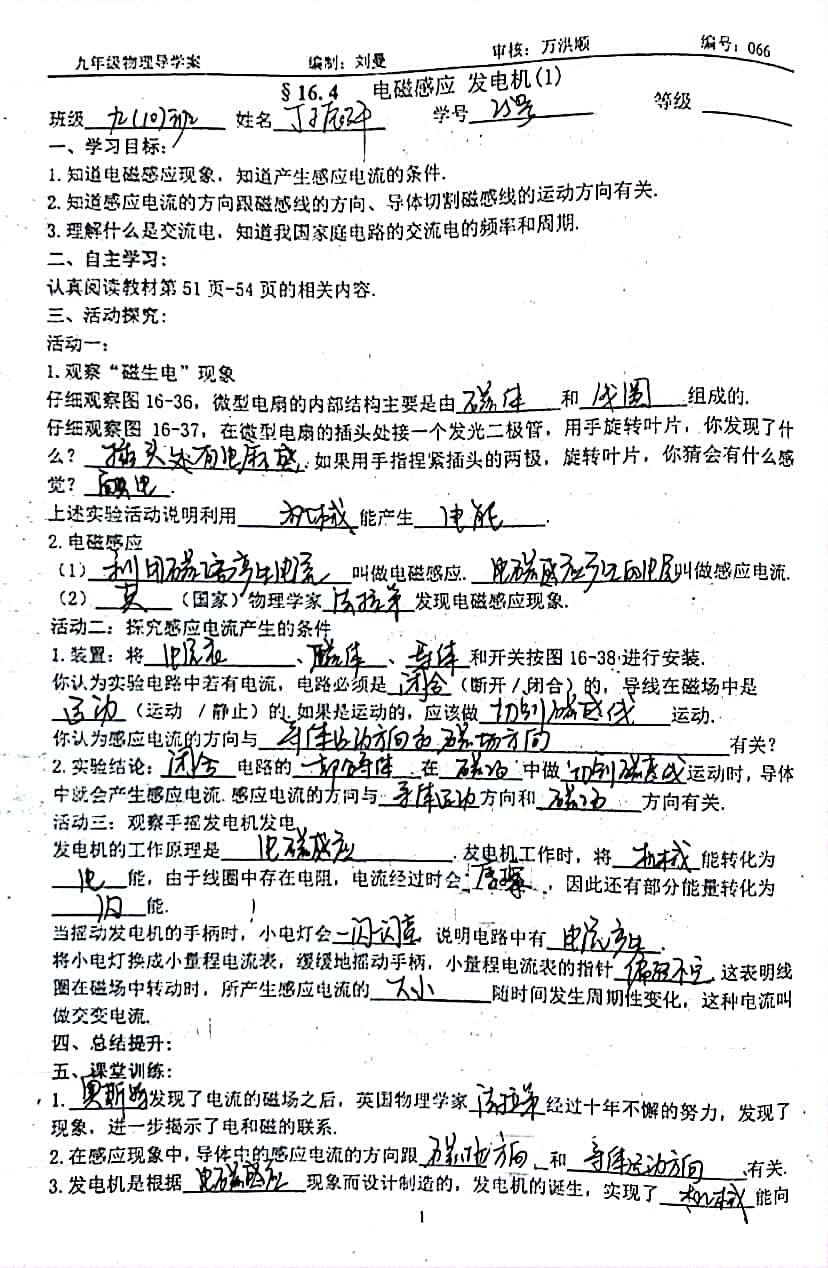 九年级物理导学案 编制：刘曼 审核：万洪顺 编号：066
§16.4 电磁感应 发电机(1)
班级 九(10)班 姓名 学号 号 等级
一、学习目标：
1.知道电磁感应现象，知道产生感应电流的条件.
2.知道感应电流的方向跟磁感线的方向、导体切割磁感线的运动方向有关.
3.理解什么是交流电，知道我国家庭电路的交流电的频率和周期.
二、自主学习：
认真阅读教材第51页-54页的相关内容.
三、活动探究：
活动一：
1.观察“磁生电”现象
仔细观察图16-36，微型电扇的内部结构主要是由 磁体 和 线圈 组成的.
仔细观察图 16-37，在微型电扇的插头处接一个发光二极管，用手旋转叶片，你发现了什
么？ 插头处有电麻感.如果用手指捏紧插头的两极，旋转叶片，你猜会有什么感
觉？ 触电.
上述实验活动说明利用 机械 能产生 电能.
2.电磁感应
（1）利用磁场产生电流 叫做电磁感应. 电磁感应产生的电流叫做感应电流.
（2） 英 （国家）物理学家 法拉第 发现电磁感应现象.
活动二：探究感应电流产生的条件
1.装置：将 电流表 、磁体 、导体 和开关按图16-38进行安装.
你认为实验电路中若有电流，电路必须是 闭合（断开/闭合）的，导线在磁场中是
运动（运动 /静止）的.如果是运动的，应该做 切割磁感线 运动.
你认为感应电流的方向与 导体运动方向和磁场方向 有关？
2.实验结论：闭合 电路的 一部分导体 在 磁场 中做 切割磁感线 运动时，导体
中就会产生感应电流.感应电流的方向与 导体运动 方向和 磁场 方向有关.
活动三：观察手摇发电机发电
发电机的工作原理是 电磁感应 .发电机工作时，将 机械 能转化为
电 能，由于线圈中存在电阻，电流经过时会 ，因此还有部分能量转化为
内 能.
当摇动发电机的手柄时，小电灯会 一闪闪亮 说明电路中有 电流产生.
将小电灯换成小量程电流表，缓缓地摇动手柄，小量程电流表的指针 偏转不定 这表明线
圈在磁场中转动时，所产生感应电流的 大小 随时间发生周期性变化，这种电流叫
做交变电流.
四、总结提升：
五、课堂训练：
1.奥斯特发现了电流的磁场之后，英国物理学家 法拉第 经过十年不懈的努力，发现了
现象，进一步揭示了电和磁的联系.
2.在感应现象中，导体中的感应电流的方向跟 磁场方向 和 导体运动方向 有关.
3.发电机是根据 电磁感应 现象而设计制造的，发电机的诞生，实现了 机械 能向
1